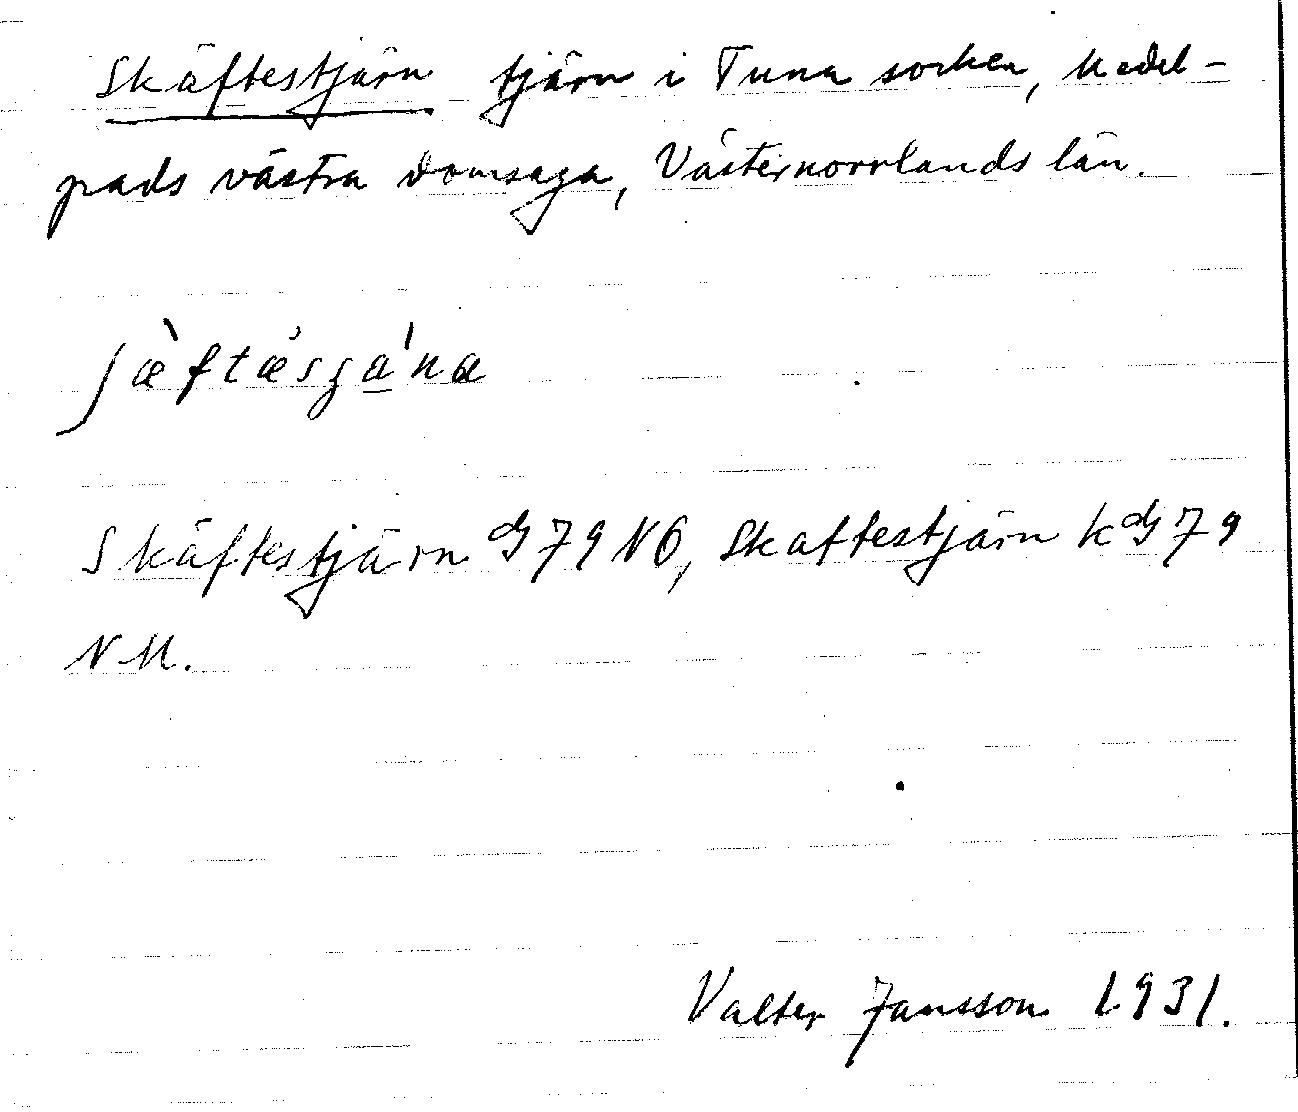 Skäftestjärn tjärn i Tuna socken, Medel-
pads västra domsaga, Västernorrlands län.
Skäftestjärn G 79 NÖ, Skaftestjärn kG 79
NM.
Valter Jansson 1931.